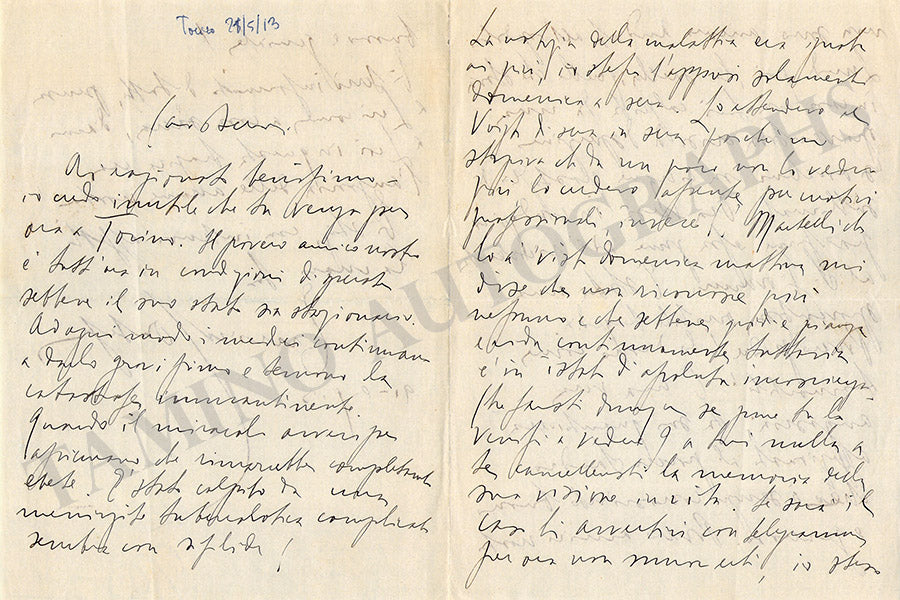 Torino 28/5/13
Caro
Hai ragionato benissimo –
io credo inutile che tu venga per
ora a Torino. Il povero amico nostro
è tutt'ora in condizioni disperate
sebbene il suo stato sia stazionario.
Ad ogni modo i medici continuano
a darlo gravissimo e temono la
catastrofe
Quando il miracolo avvenisse
assicurano che rimarrebbe completamente
ebete. È stato colpito da una
meningite tubercolotica complicata
sembra con sifilide!
La notizia della malattia era ignota
ai più, io stesso l'appresi solamente
domenica a sera. Lo attendevo al
di sera in sera perchè mi
stupiva che da un poco non lo vedevo
più lo credevo assente per motivi
professionali invece!. che
lo a visto domenica mattina mi
disse che non riconosce più
nessuno e che sebbene gridi e pianga
e rida continuamente tuttavia
è in istato di assoluta incoscienza –
Che faresti dunque se pure tu lo
venissi a vedere? a lui nulla a
te cancelleresti la memoria della
sua visione in vita. Se sarà il
caso ti avvertirò con telegramma
per ora non muoverti, io stesso
TAMINO AUTOGRAPHS